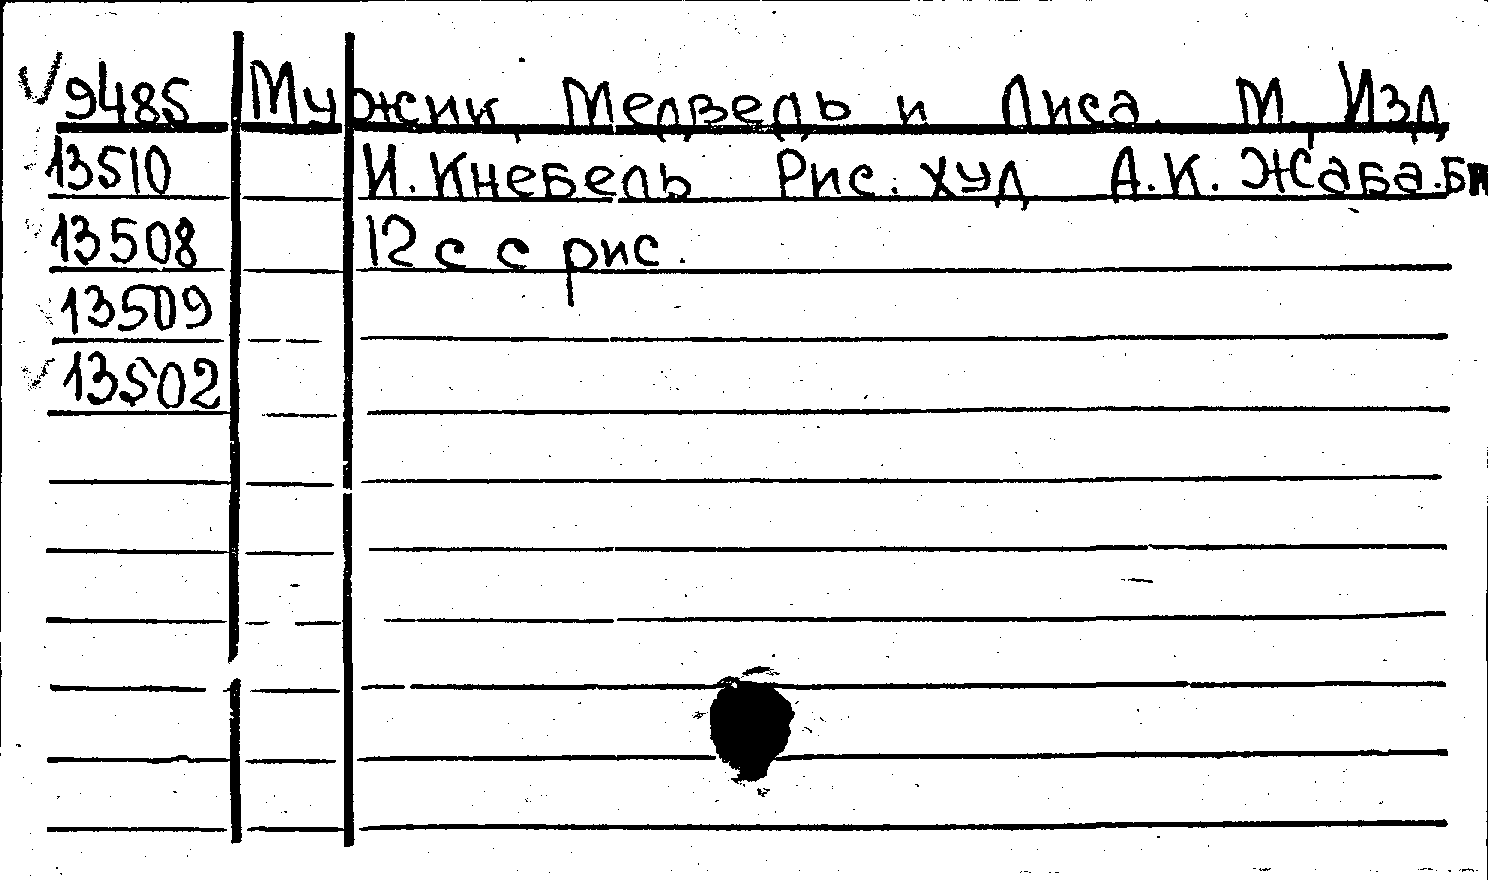 9485 Мужик, Медведь и Лиса. М., Изд.
13510 И. Кнебель Рис. худ А.К. Жаба. Бг
13508 12 с с рис.
13509
13502